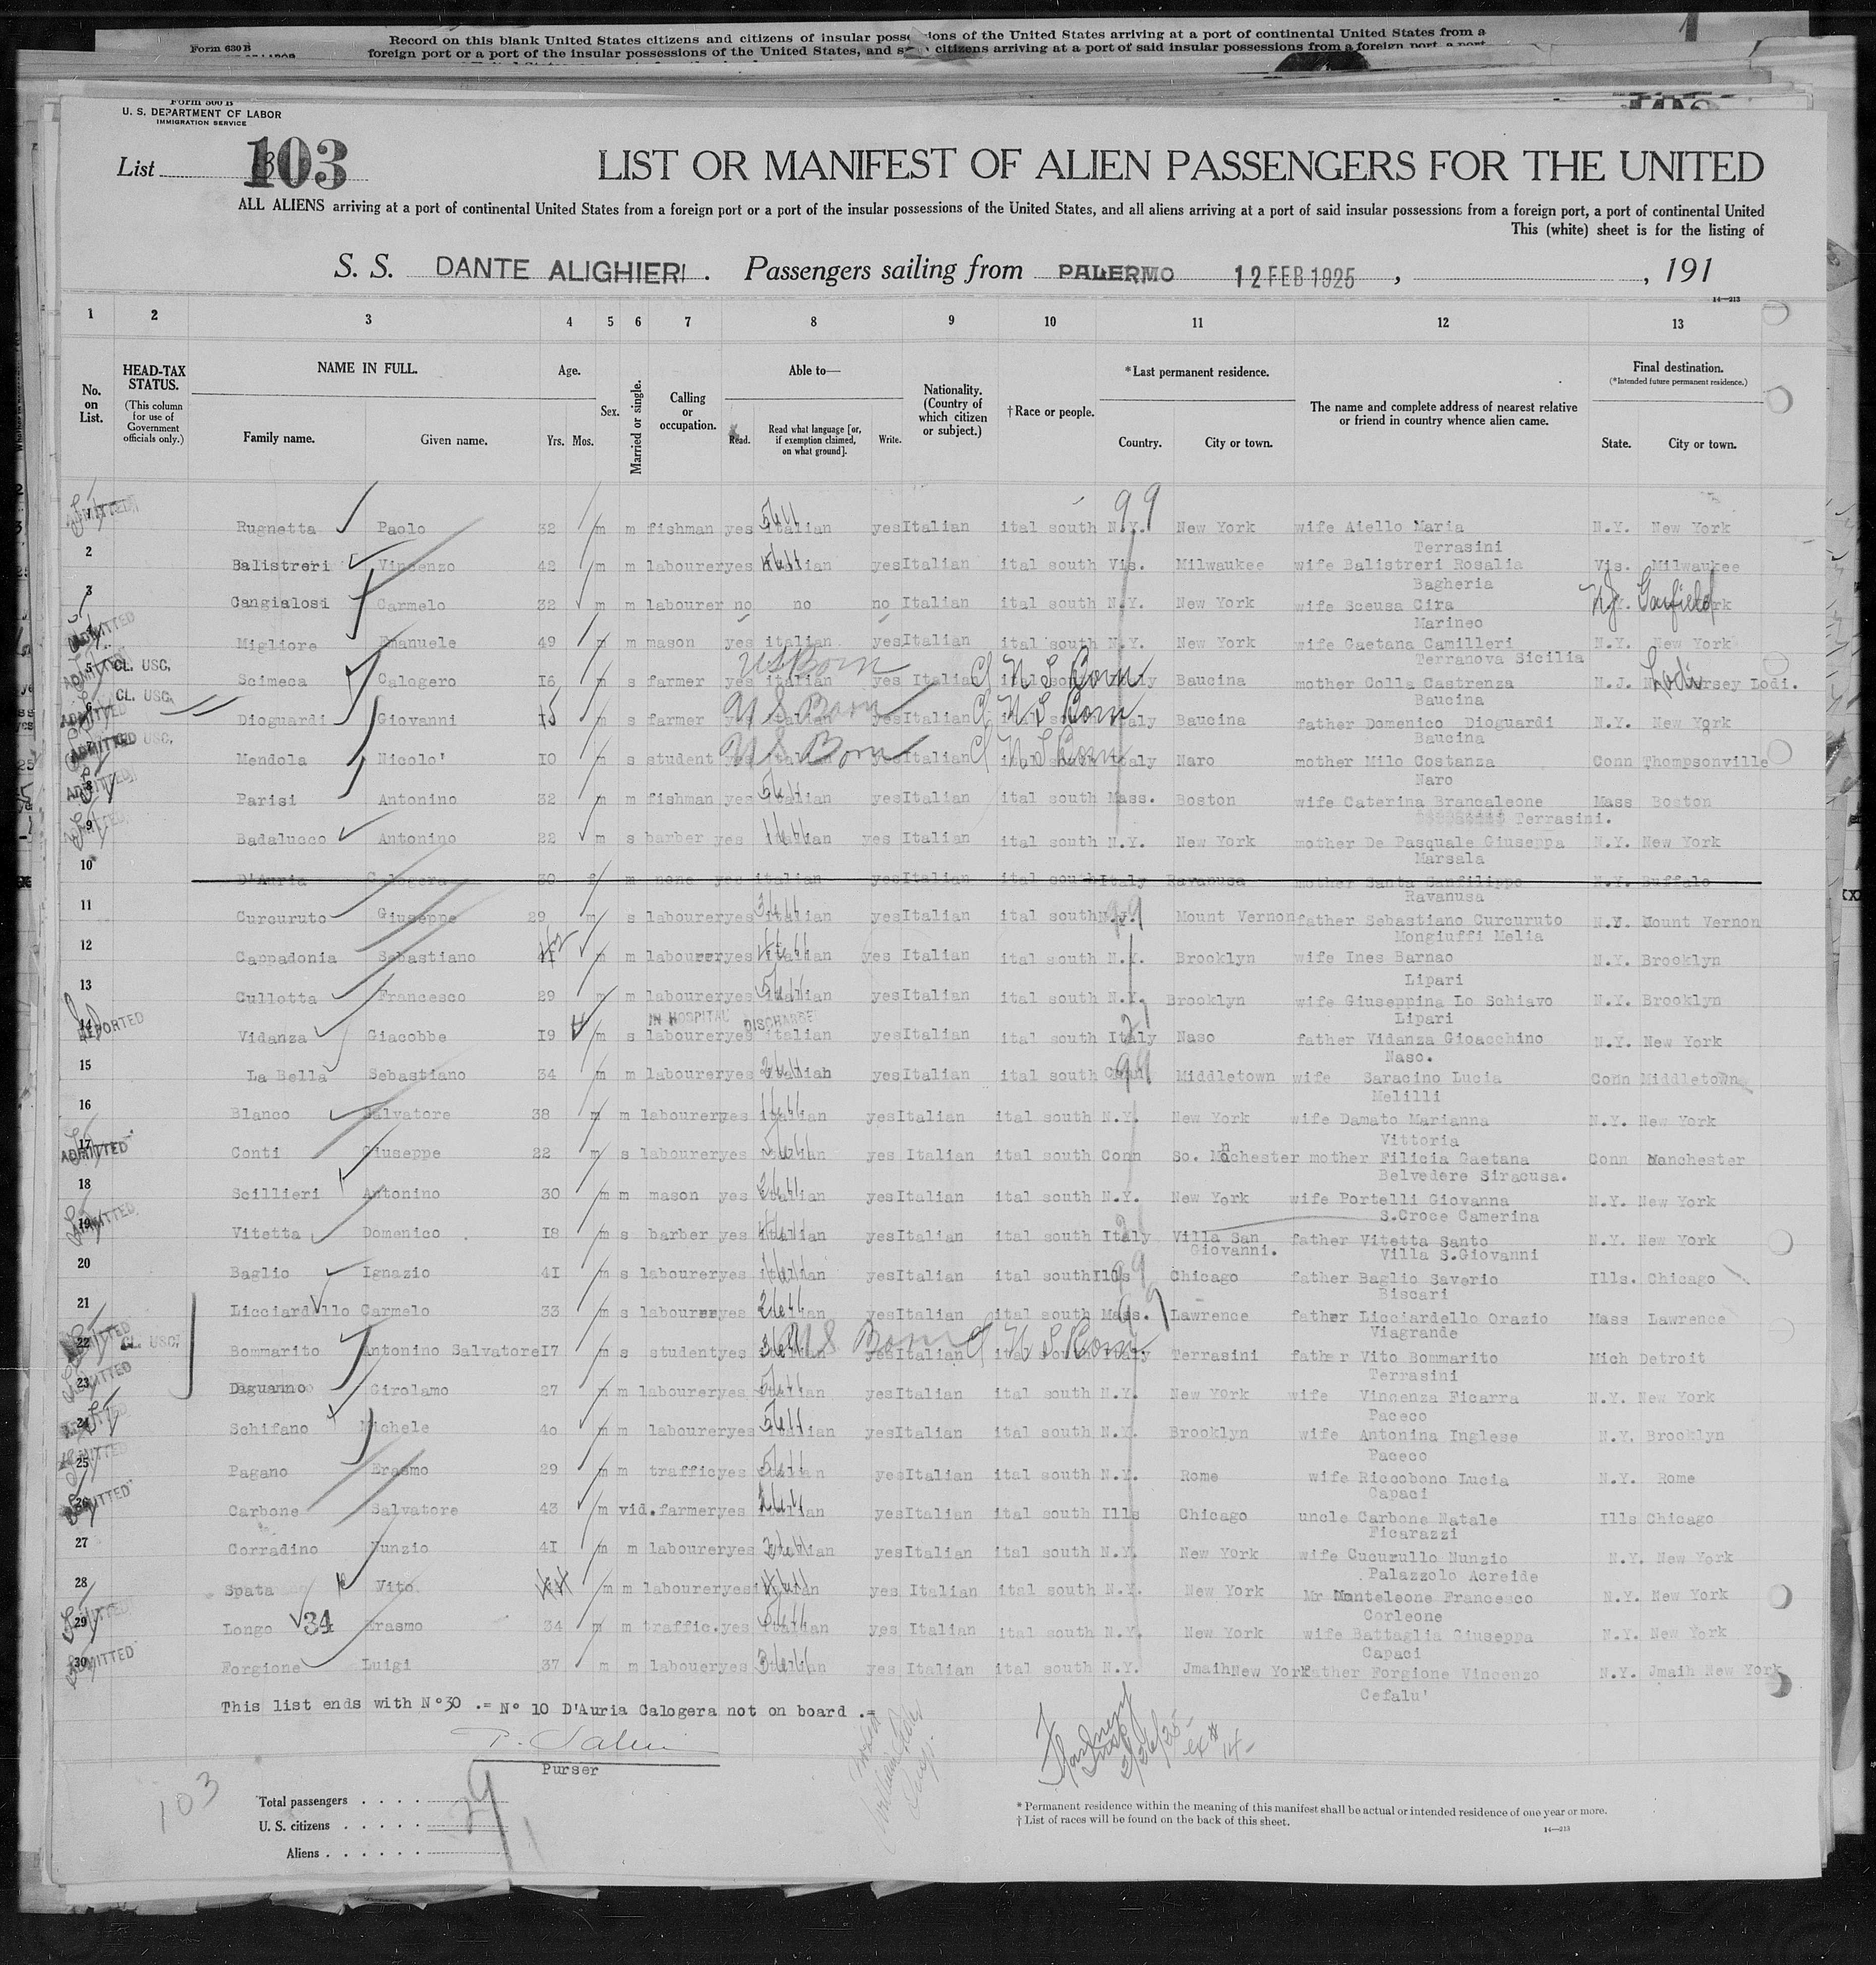 Form 630 B
Record on this blank United States citizens and citizens of insular possessions of the United States arriving at a port of continental United States from a
foreign port or a port of the insular possessions of the United States, and citizens arriving at a port of said insular possessions from a foreign port, a port
Form 500 B
U. S. DEPARTMENT OF LABOR
IMMIGRATION SERVICE
List 103
LIST OR MANIFEST OF ALIEN PASSENGERS FOR THE UNITED
ALL ALIENS arriving at a port of continental United States from a foreign port or a port of the insular possessions of the United States, and all aliens arriving at a port of said insular possessions from a foreign port, a port of continental United
This (white) sheet is for the listing of
S. S. DANTE ALIGHIERI. Passengers sailing from PALERMO 12 FEB 1925, , 191
14—213
1 2 3 4 5 6 7 8 9 10 11 12 13
No. on List.
HEAD-TAX STATUS.
(This column for use of Government officials only.)
NAME IN FULL.
Family name. Given name.
Age.
Yrs. Mos.
Sex.
Married or single.
Calling or occupation.
Able to—
Read. Read what language [or, if exemption claimed, on what ground]. Write.
Nationality. (Country of which citizen or subject.)
†Race or people.
*Last permanent residence.
Country. City or town.
The name and complete address of nearest relative or friend in country whence alien came.
Final destination.
(*Intended future permanent residence.)
State. City or town.
99
ADMITTED Rugnetta Paolo 32 m m fishman yes italian yes Italian ital south N.Y. New York wife Aiello Maria N.Y. New York
Terrasini
2 Balistreri Vincenzo 42 m m labourer yes italian yes Italian ital south Vis. Milwaukee wife Balistreri Rosalia Vis. Milwaukee
Bagheria
3 Cangialosi Carmelo 32 m m labourer no no no Italian ital south N.Y. New York wife Sceusa Cira NJ. Garfield
Marineo
ADMITTED Migliore Emanuele 49 m m mason yes italian yes Italian ital south N.Y. New York wife Gaetana Camilleri N.Y. New York
Terranova Sicilia
5 ADMITTED CL. USC. Scimeca Calogero 16 m s farmer yes italian US Born yes Italian ital south US Born Italy Baucina mother Colla Castrenza N.J. Lodi Lodi.
Baucina
6 ADMITTED CL. USC. Dioguardi Giovanni 15 m s farmer yes italian US Born yes Italian US Born Italy Baucina father Domenico Dioguardi N.Y. New York
Baucina
ADMITTED USC. Mendola Nicolo' 10 m s student yes italian US Born yes Italian US Born Italy Naro mother Milo Costanza Conn Thompsonville
Naro
8 ADMITTED Parisi Antonino 32 m m fishman yes italian yes Italian ital south Mass. Boston wife Caterina Brancaleone Mass Boston
Terrasini.
9 ADMITTED Badalucco Antonino 22 m s barber yes italian yes Italian ital south N.Y. New York mother De Pasquale Giuseppa N.Y. New York
Marsala
10 D'Auria Calogera 30 f m none yes italian yes Italian ital south Italy Ravanusa mother Santa Sanfilippo N.Y. Buffalo
Ravanusa
11 Curcuruto Giuseppe 29 m s labourer yes italian yes Italian ital south N.Y. Mount Vernon father Sebastiano Curcuruto N.Y. Mount Vernon
Mongiuffi Melia
12 Cappadonia Sebastiano 42 m m labourer yes italian yes Italian ital south N.Y. Brooklyn wife Ines Barnao N.Y. Brooklyn
Lipari
13 Cullotta Francesco 29 m m labourer yes italian yes Italian ital south N.Y. Brooklyn wife Giuseppina Lo Schiavo N.Y. Brooklyn
Lipari
IN HOSPITAL DISCHARGED
14 Vidanza Giacobbe 19 m s labourer yes italian yes Italian ital south Italy Naso father Vidanza Gioacchino N.Y. New York
Naso.
15 La Bella Sebastiano 34 m m labourer yes italian yes Italian ital south Conn Middletown wife Saracino Lucia Conn Middletown
Melilli
16 Blanco Salvatore 38 m m labourer yes italian yes Italian ital south N.Y. New York wife Damato Marianna N.Y. New York
Vittoria
17 ADMITTED Conti Giuseppe 22 m s labourer yes italian yes Italian ital south Conn So. Manchester mother Filicia Gaetana Conn Manchester
Belvedere Siracusa.
18 Scillieri Antonino 30 m m mason yes italian yes Italian ital south N.Y. New York wife Portelli Giovanna N.Y. New York
S.Croce Camerina
19 ADMITTED Vitetta Domenico 18 m s barber yes italian yes Italian ital south Italy Villa San Giovanni. father Vitetta Santo N.Y. New York
Villa S.Giovanni
20 Baglio Ignazio 41 m s labourer yes italian yes Italian ital south Ills Chicago father Baglio Saverio Ills. Chicago
Biscari
21 Licciardello Carmelo 33 m s labourer yes italian yes Italian ital south Mass. Lawrence father Licciardello Orazio Mass Lawrence
Viagrande
22 ADMITTED CL. USC. Bommarito Antonino Salvatore 17 m s student yes US Born yes Italian US Born Italy Terrasini father Vito Bommarito Mich Detroit
Terrasini
23 ADMITTED Daguanno Girolamo 27 m m labourer yes italian yes Italian ital south N.Y. New York wife Vincenza Ficarra N.Y. New York
Paceco
24 Schifano Michele 40 m m labourer yes italian yes Italian ital south N.Y. Brooklyn wife Antonina Inglese N.Y. Brooklyn
Paceco
25 ADMITTED Pagano Erasmo 29 m m traffic yes italian yes Italian ital south N.Y. Rome wife Riccobono Lucia N.Y. Rome
Capaci
26 ADMITTED Carbone Salvatore 43 m vid. farmer yes italian yes Italian ital south Ills Chicago uncle Carbone Natale Ills Chicago
Ficarazzi
27 Corradino Nunzio 41 m m labourer yes italian yes Italian ital south N.Y. New York wife Cucurullo Nunzio N.Y. New York
Palazzolo Acreide
28 Spata Vito 44 m m labourer yes italian yes Italian ital south N.Y. New York Mr Monteleone Francesco N.Y. New York
Corleone
29 ADMITTED Longo 34 Erasmo 34 m m traffic. yes italian yes Italian ital south N.Y. New York wife Battaglia Giuseppa N.Y. New York
Capaci
30 ADMITTED Forgione Luigi 37 m m laboueryes italian yes Italian ital south N.Y. Jmaih New York father Forgione Vincenzo N.Y. Jmaih New York
Cefalu'
This list ends with N°30 .= N° 10 D'Auria Calogera not on board .=
Purser
103
Total passengers . . . . 29
U. S. citizens . . . . .
Aliens . . . . . .
2/26/25
* Permanent residence within the meaning of this manifest shall be actual or intended residence of one year or more.
† List of races will be found on the back of this sheet.
14—213